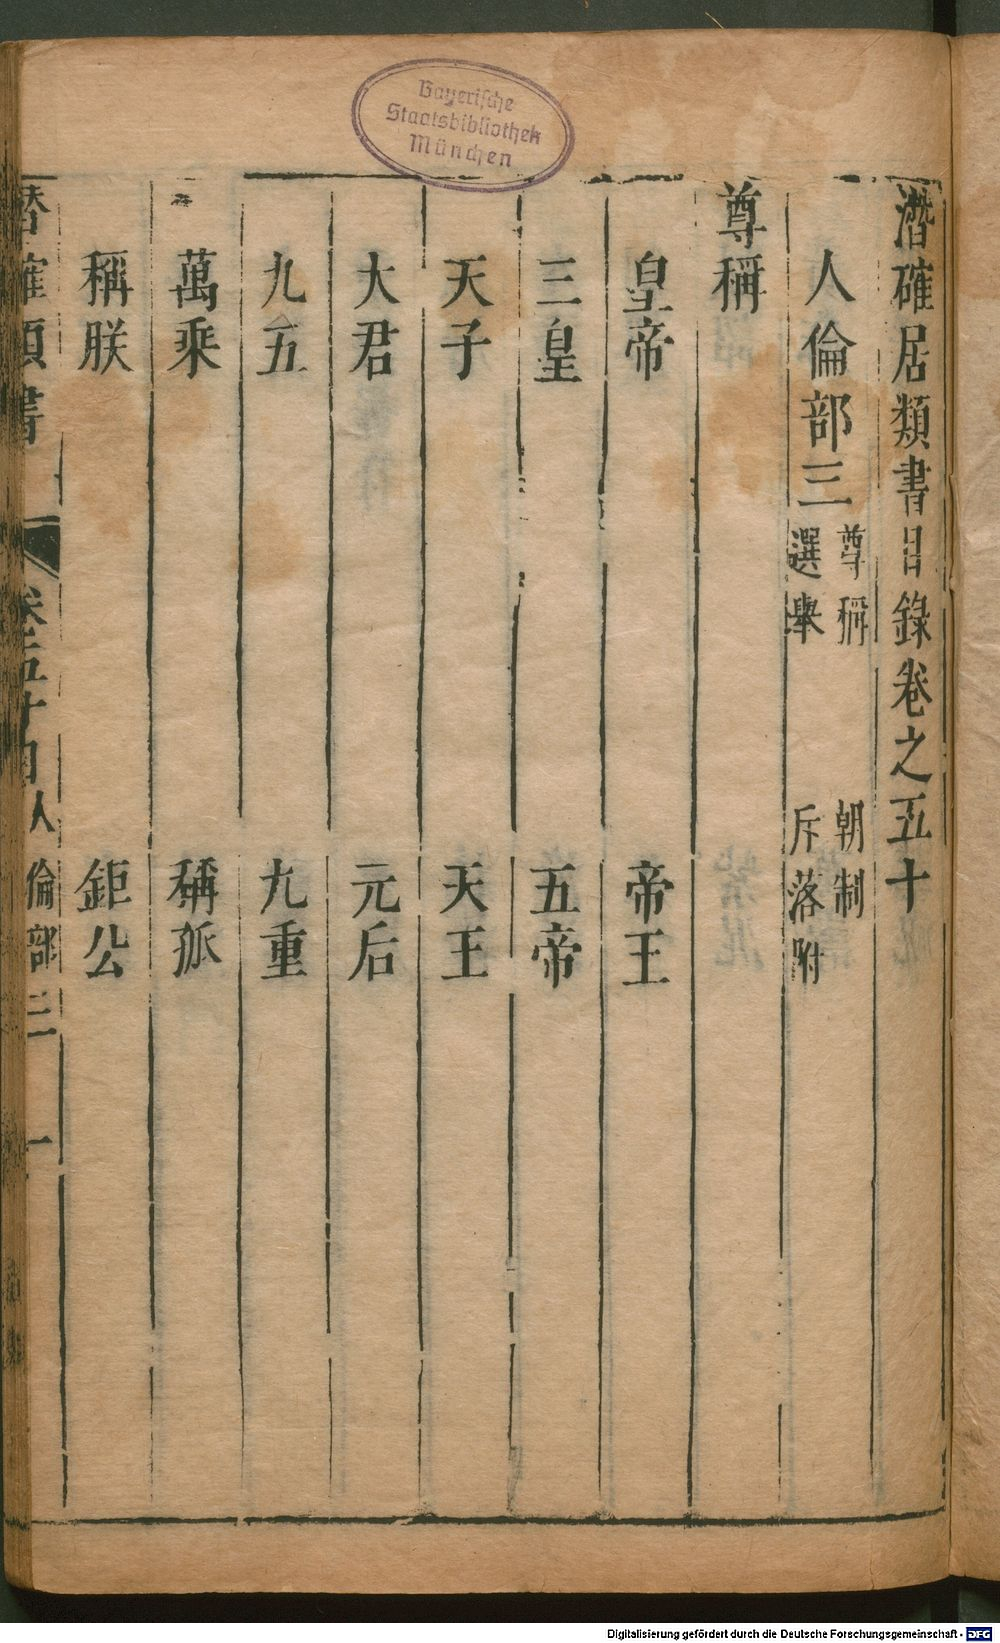 Bayerische
Staatsbibliothek
München
潛確居類書目錄卷之五十
人倫部三
尊稱 朝制
選舉 斥落附
尊稱
皇帝 帝王
三皇 五帝
天子 天王
大君 元后
九五 九重
萬乘 稱孤
稱朕 鉅公
潛確類書 卷五十目 人倫部三 一
Digitalisierung gefördert durch die Deutsche Forschungsgemeinschaft - DFG